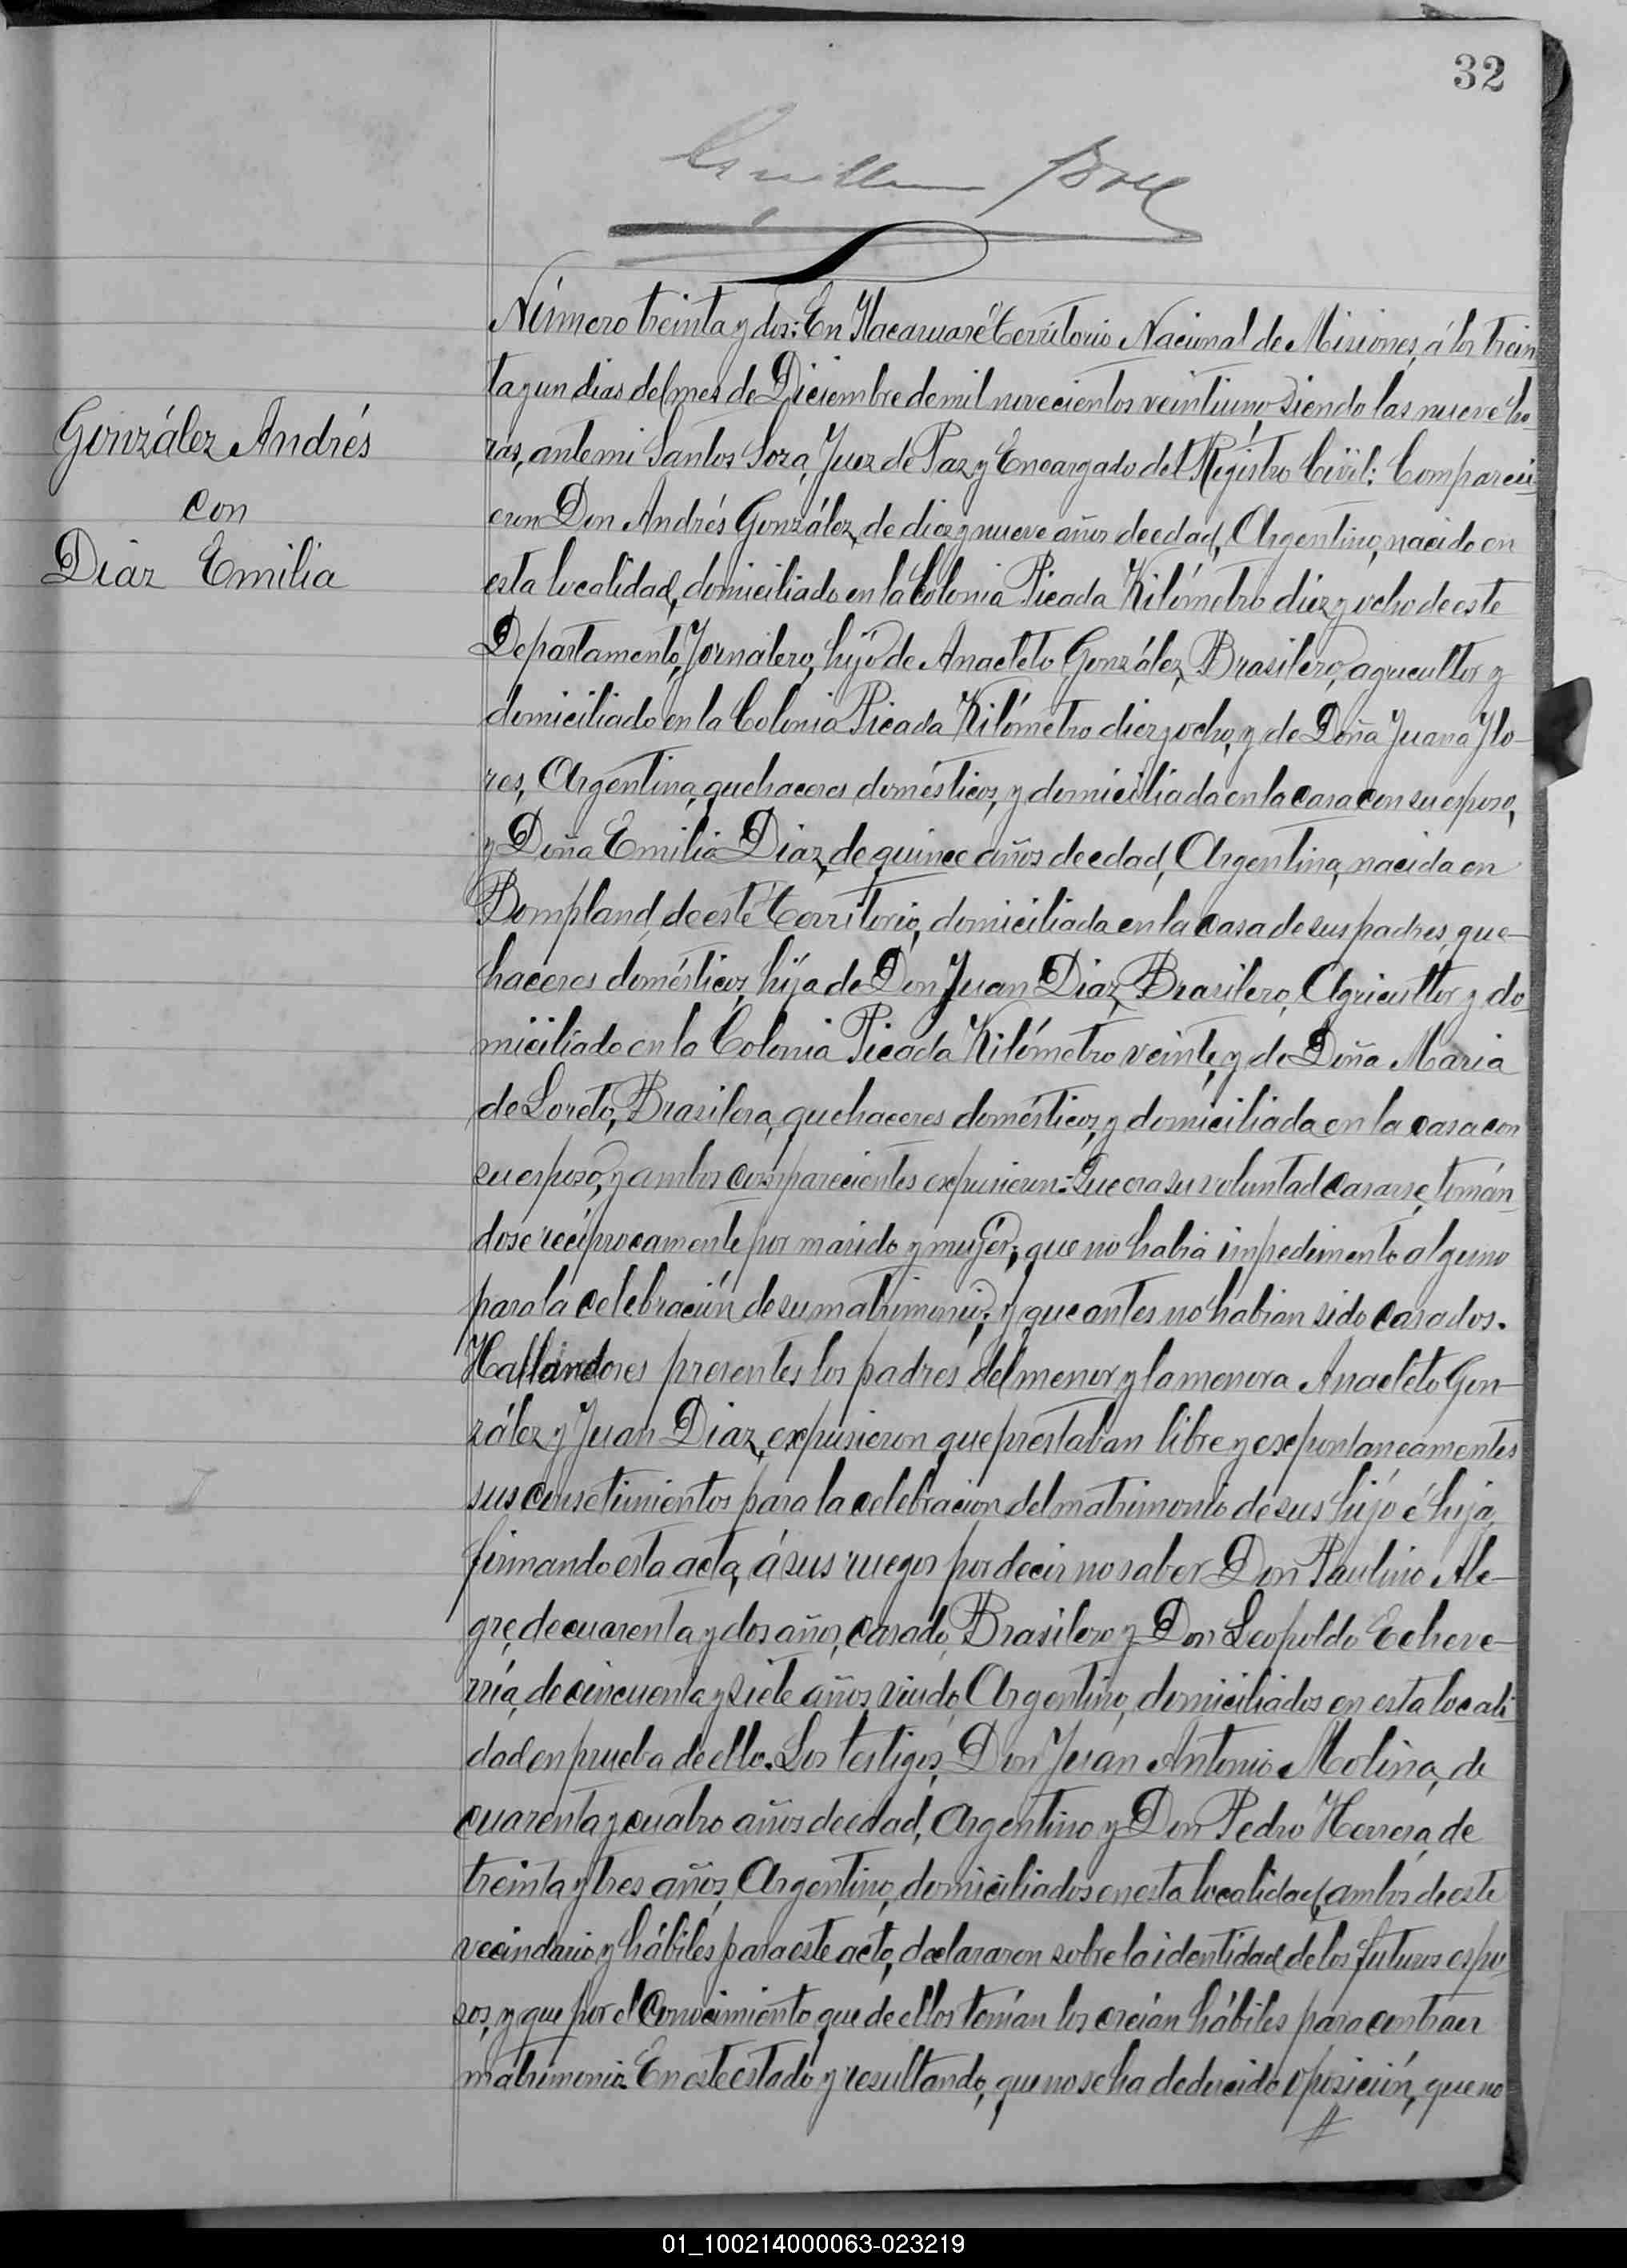 32
Número treinta y dos: En Ytacaruaré Territorio Nacional de Misiones, á los trein
ta y un dias del mes de Diciembre de mil novecientos veintiuno, siendo las nueve ho
González Andrés
con
Diaz Emilia
ras, ante mi Santos Soza, Juez de Paz y Encargado del Registro Civil: Compareci
eron Don Andrés González, de diez y nueve años de edad, Argentino, nacido en
esta localidad, domiciliado en la Colonia Picada Kilómetro diez y ocho de este
Departamento, Jornalero, hijo de Anacleto González, Brasilero, agricultor y
domiciliado en la Colonia Picada Kilómetro diez y ocho, y de Doña Juana Flo-
res, Argentina, quehaceres domésticos, y domiciliada en la casa con su esposo,
y Doña Emilia Diaz, de quince años de edad, Argentina, nacida en
Bompland, de este Territorio, domiciliada en la casa de sus padres, que-
haceres domésticos, hija de Don Juan Diaz, Brasilero, Agricultor y do
miciliado en la Colonia Picada Kilómetro veinte, y de Doña Maria
de Loreto, Brasilera, quehaceres domésticos, y domiciliada en la casa con
su esposo, y ambos comparecientes expusieron: Que era su voluntad casarse, tomán
dose recíprocamente por marido y mujer; que no habia impedimento alguno
para la celebración de su matrimonio; y que antes no habian sido casados.
Hallandoses presentes los padres del menor y la menora Anacleto Gon-
zález y Juan Diaz, expusieron que prestaban libre y exspontaneamentes
sus consetimientos para la celebracion del matrimonio de sus hijo é hija,
firmando esta acta, á sus ruegos por decir no saber Don Paulino Ale-
gre, de cuarenta y dos años, casado, Brasilero y Don Leopoldo Echeve-
rría, de cincuenta y siete años, viudo, Argentino, domiciliados en esta locali
dad en prueba de ello. Los testigos, Don Juan Antonio Molina, de
cuarenta y cuatro años de edad, Argentino y Don Pedro Herrera, de
treinta y tres años, Argentino, domiciliados en esta localidad, ambos de este
vecindario y hábiles para este acto, declararon sobre la identidad de los futuros espo
sos, y que por el conocimiento que de ellos tenían los creían hábiles para contraer
matrimonio. En este estado y resultando, que no se ha deducido oposición, que no
#
01_100214000063-023219